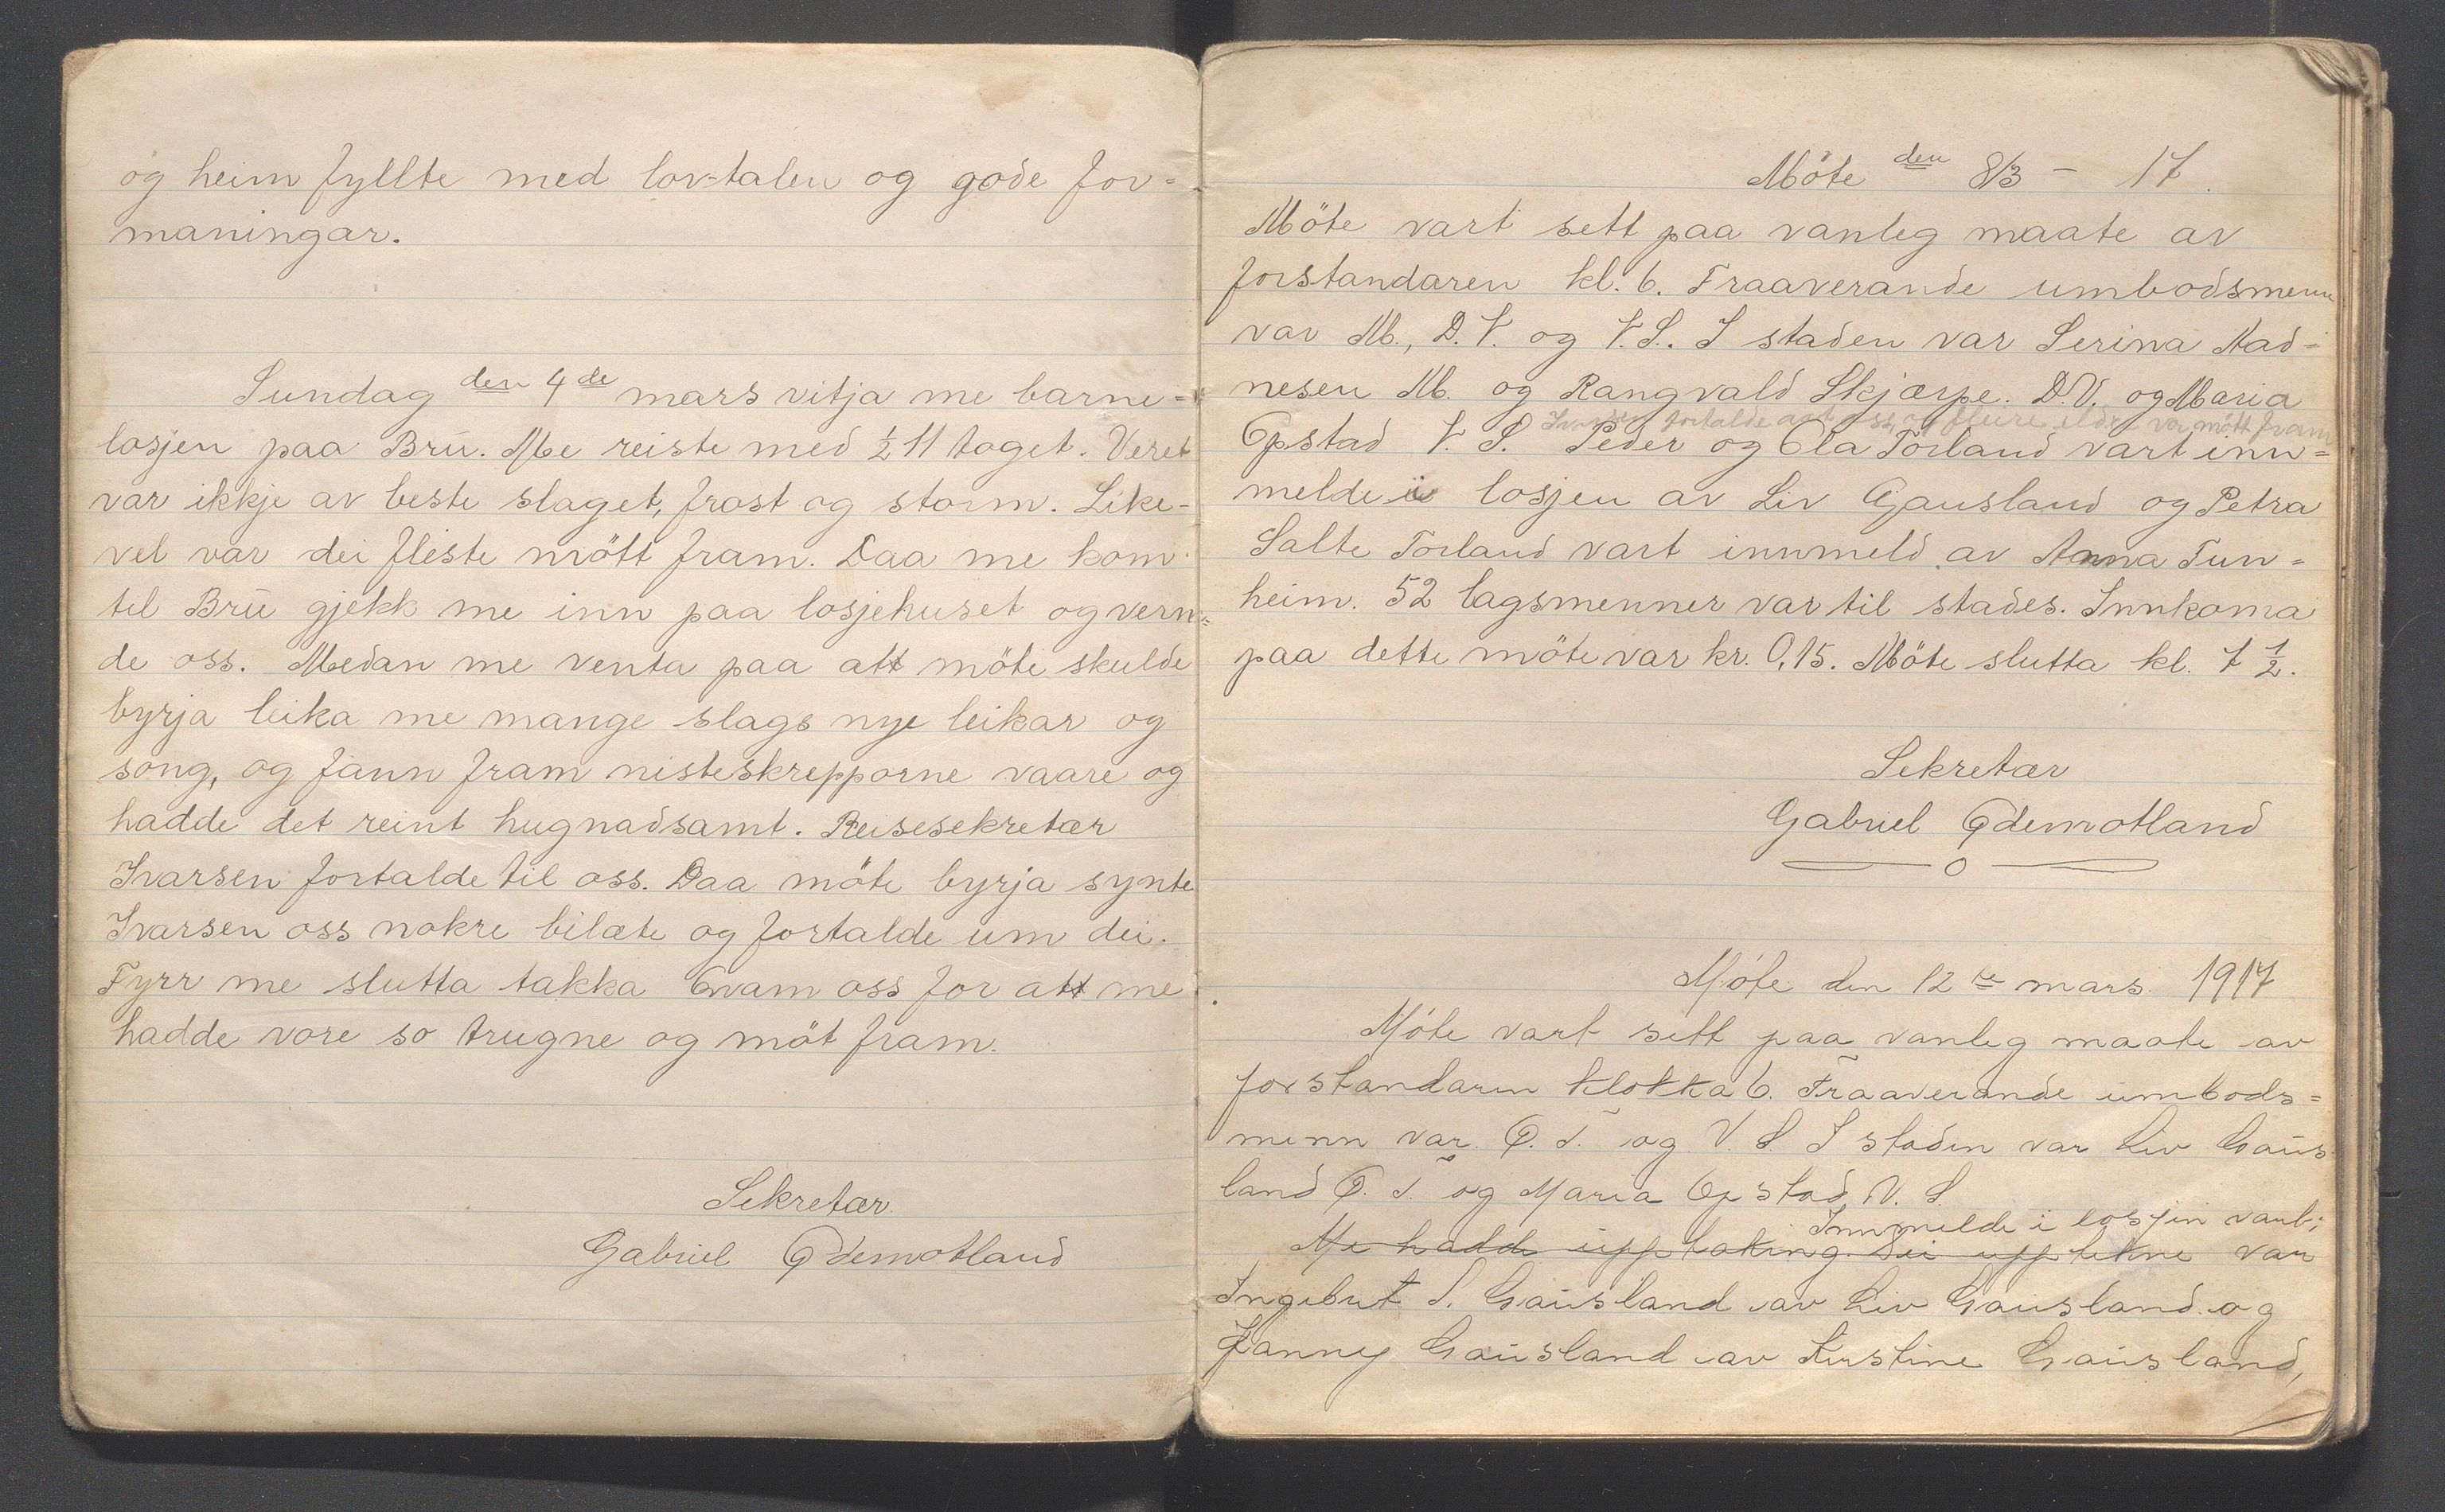 og heim fyllte med lov-talen og gode for=
maningar.
Sundag den 4de mars vitja me barne=
losjen paa Brū. Me reiste med ½ 11 toget. Veret
var ikkje av beste slaget, frost og storm. Like-
vel var dei fleste mött fram. Daa me kom
til Brū gjekk me inn paa losjehuset og verm=
de oss. Medan me venta paa att möte skulde
byrja leika me mange slags nye leikar og
song, og fann fram nisteskrepporne vaare og
hadde det reint hugnadsamt. Reisesekretær
Ivarsen fortalde til oss. Daa möte byrja synte
Ivarsen oss nokre bilæte og fortalde um dei.
Fyrr me slutta takka Evam oss for att me
hadde vore so trugne og möt fram.
Sekretær
Gabriel Ødemotland
Möte den 8/3 - 17.
Möte vart sett paa vanleg maate av
forstandaren kl. 6. Fraaverande umbodsmenn
var M., D.V. og V.S. I staden var Serina Mad=
nesen M. og Rangvald Skjærpe. D.V. og Maria
fortalde oss, og fleire eldre var mött fram
Opstad V. S. Peder og Ola Torland vart inn=
melde i losjen av Liv Gausland og Petra
Salte Torland vart innmeld av Anna Tun=
heim. 52 lagsmenner var til stades. Innkoma
paa dette möte var kr. 0,15. Möte slutta kl. 7 ½.
Sekretær
Gabriel Ødemotland
Möte den 12te mars. 1917
Möte vart sett paa vanleg maate av
forstandaren klokka 6. Fraaverande umbods=
menn var. Ø. T. og V. S. I staden var Liv Gaūs
land Ø. T. og Maria Opstad V. S.
Innmelde i losjen vart;
Me hadde upptaking. Dei upptekne var
Ingebret S. Gaūsland av Liv Gaūsland og
Fanney Gaūsland av Kirstine Gaūsland,